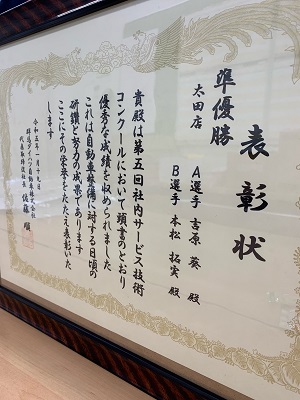 表彰状
準優勝
太田店
A選手 吉原 葵 殿
B選手 本松 拓実 殿
貴殿は第五回社内サービス技術
コンクールにおいて頭書のとおり
優秀な成績を収められました
これは自動車整備に対する日頃の
研鑽と努力の成果であります
ここにその栄誉をたたえ表彰いた
します
令和五年一月十七日
群馬ダイハツ自動車株式会社
代表取締役社長 佐藤 順